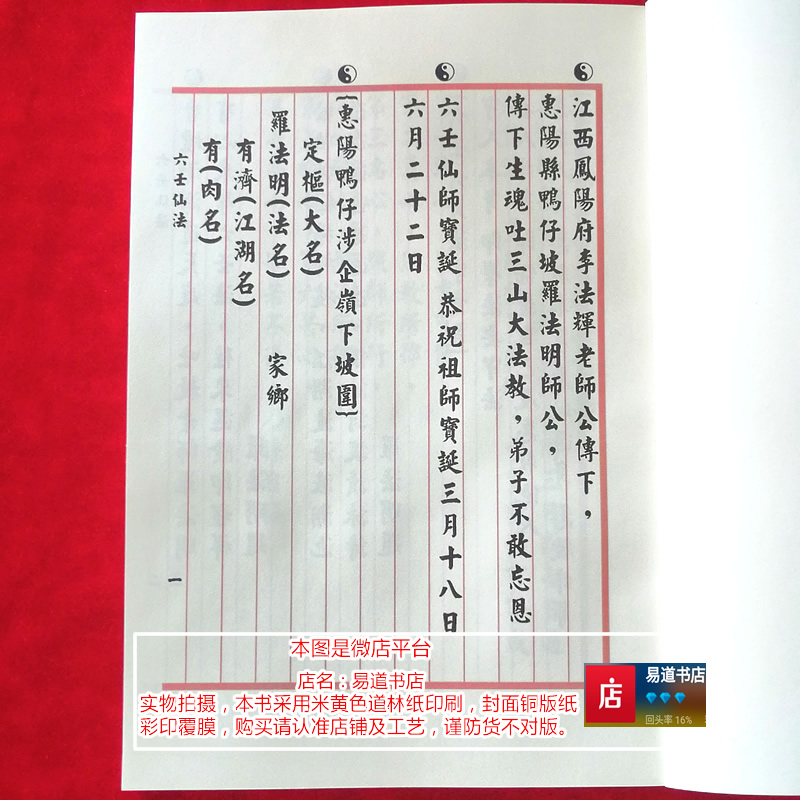 江西鳳陽府李法輝老師公傳下，
惠陽縣鴨仔坡羅法明師公，
傳下生魂吐三山大法教，弟子不敢忘恩
六壬仙師寶誕 恭祝祖師寶誕三月十八日
六月二十二日
{惠陽鴨仔涉企嶺下坡圍}
定樞(大名)
羅法明(法名) 家鄉
有濟(江湖名)
有(肉名)
六壬仙法
一
本图是微店平台
店名：易道书店
实物拍摄，本书采用米黄色道林纸印刷，封面铜版纸
彩印覆膜，购买请认准店铺及工艺，谨防货不对版。
店
易道书店
回头率 16%